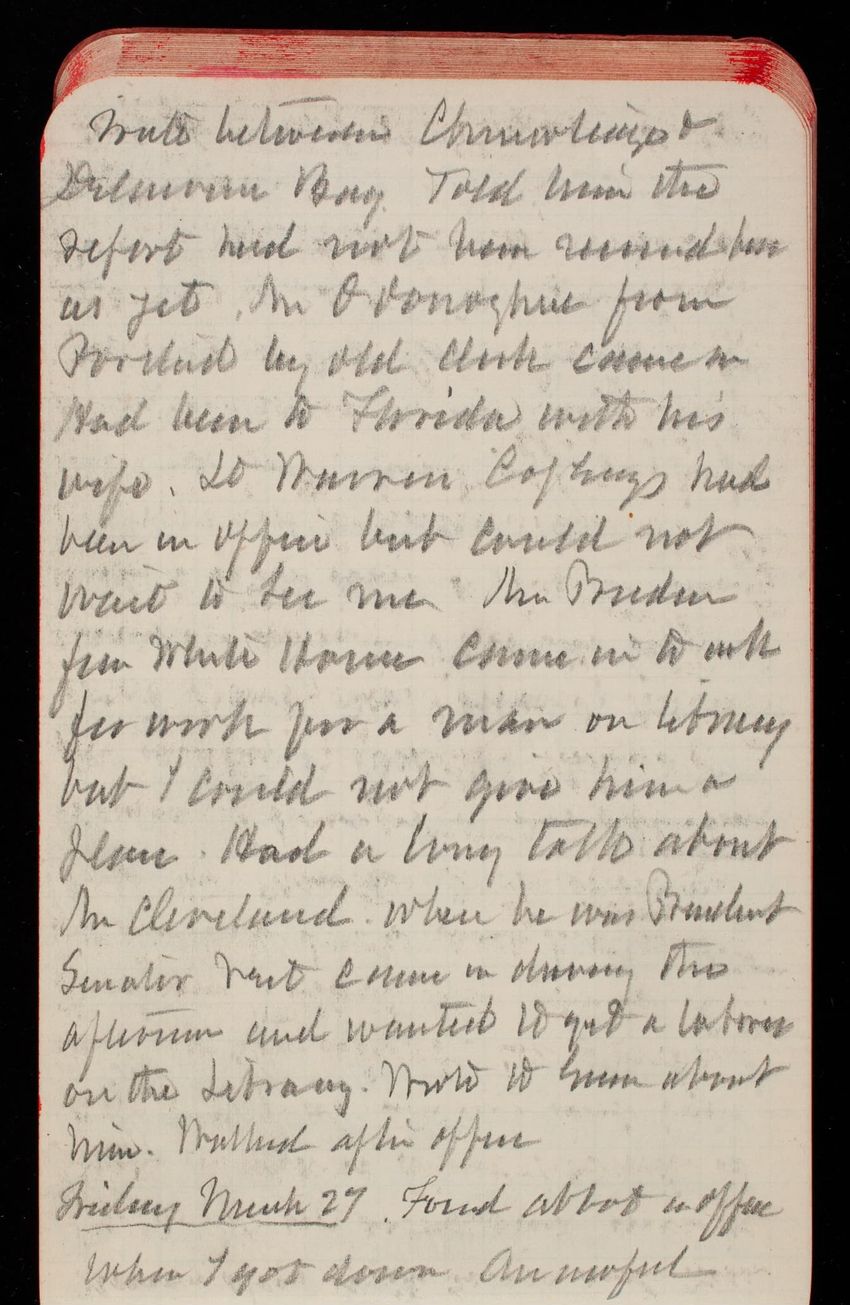 route between Chesapeake &
Delaware Bay. Told him the
report had not been received here
as yet. Mr O'Donoghue from
Portland my old clerk came in
Had been to Florida with his
wife. Lt Warren Cophuys had
been in office but could not
wait to see me. Mr Pruden
from White House came in to ask
for work for a man on library
but I could not give him a
place. Had a long talk about
Mr Cleveland when he was President
Senator Vest came in during the
afternoon and wanted to get a laborer
on the Library. Wrote to Green about
him. Walked after office
Friday March 27. Found Abbot in office
when I got down An awful